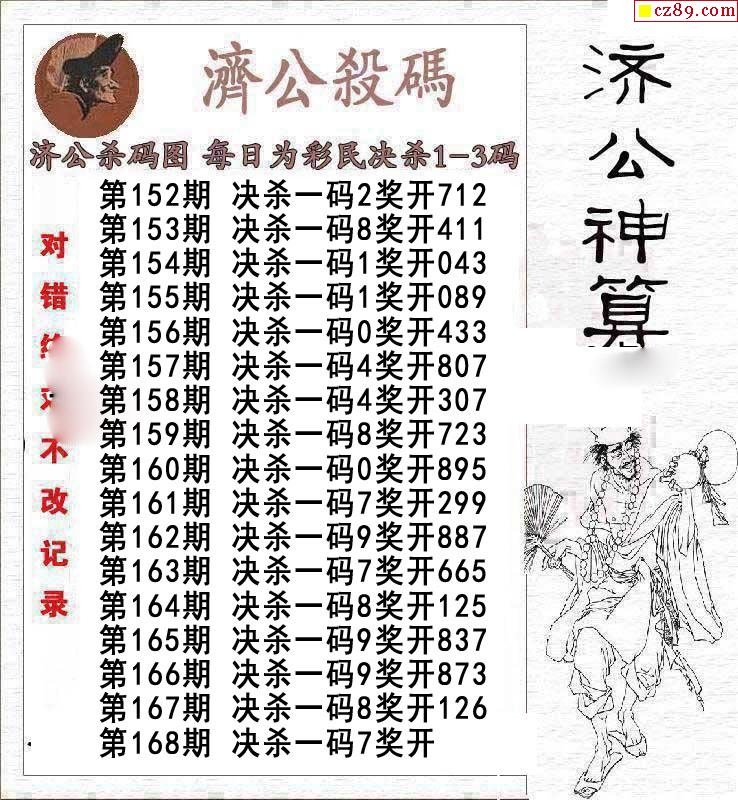 cz89.com
濟公殺碼
济公杀码图 每日为彩民决杀1-3码
第152期 决杀一码2奖开712
第153期 决杀一码8奖开411
第154期 决杀一码1奖开043
第155期 决杀一码1奖开089
第156期 决杀一码0奖开433
第157期 决杀一码4奖开807
第158期 决杀一码4奖开307
第159期 决杀一码8奖开723
第160期 决杀一码0奖开895
第161期 决杀一码7奖开299
第162期 决杀一码9奖开887
第163期 决杀一码7奖开665
第164期 决杀一码8奖开125
第165期 决杀一码9奖开837
第166期 决杀一码9奖开873
第167期 决杀一码8奖开126
第168期 决杀一码7奖开
对错不改记录
济公神算